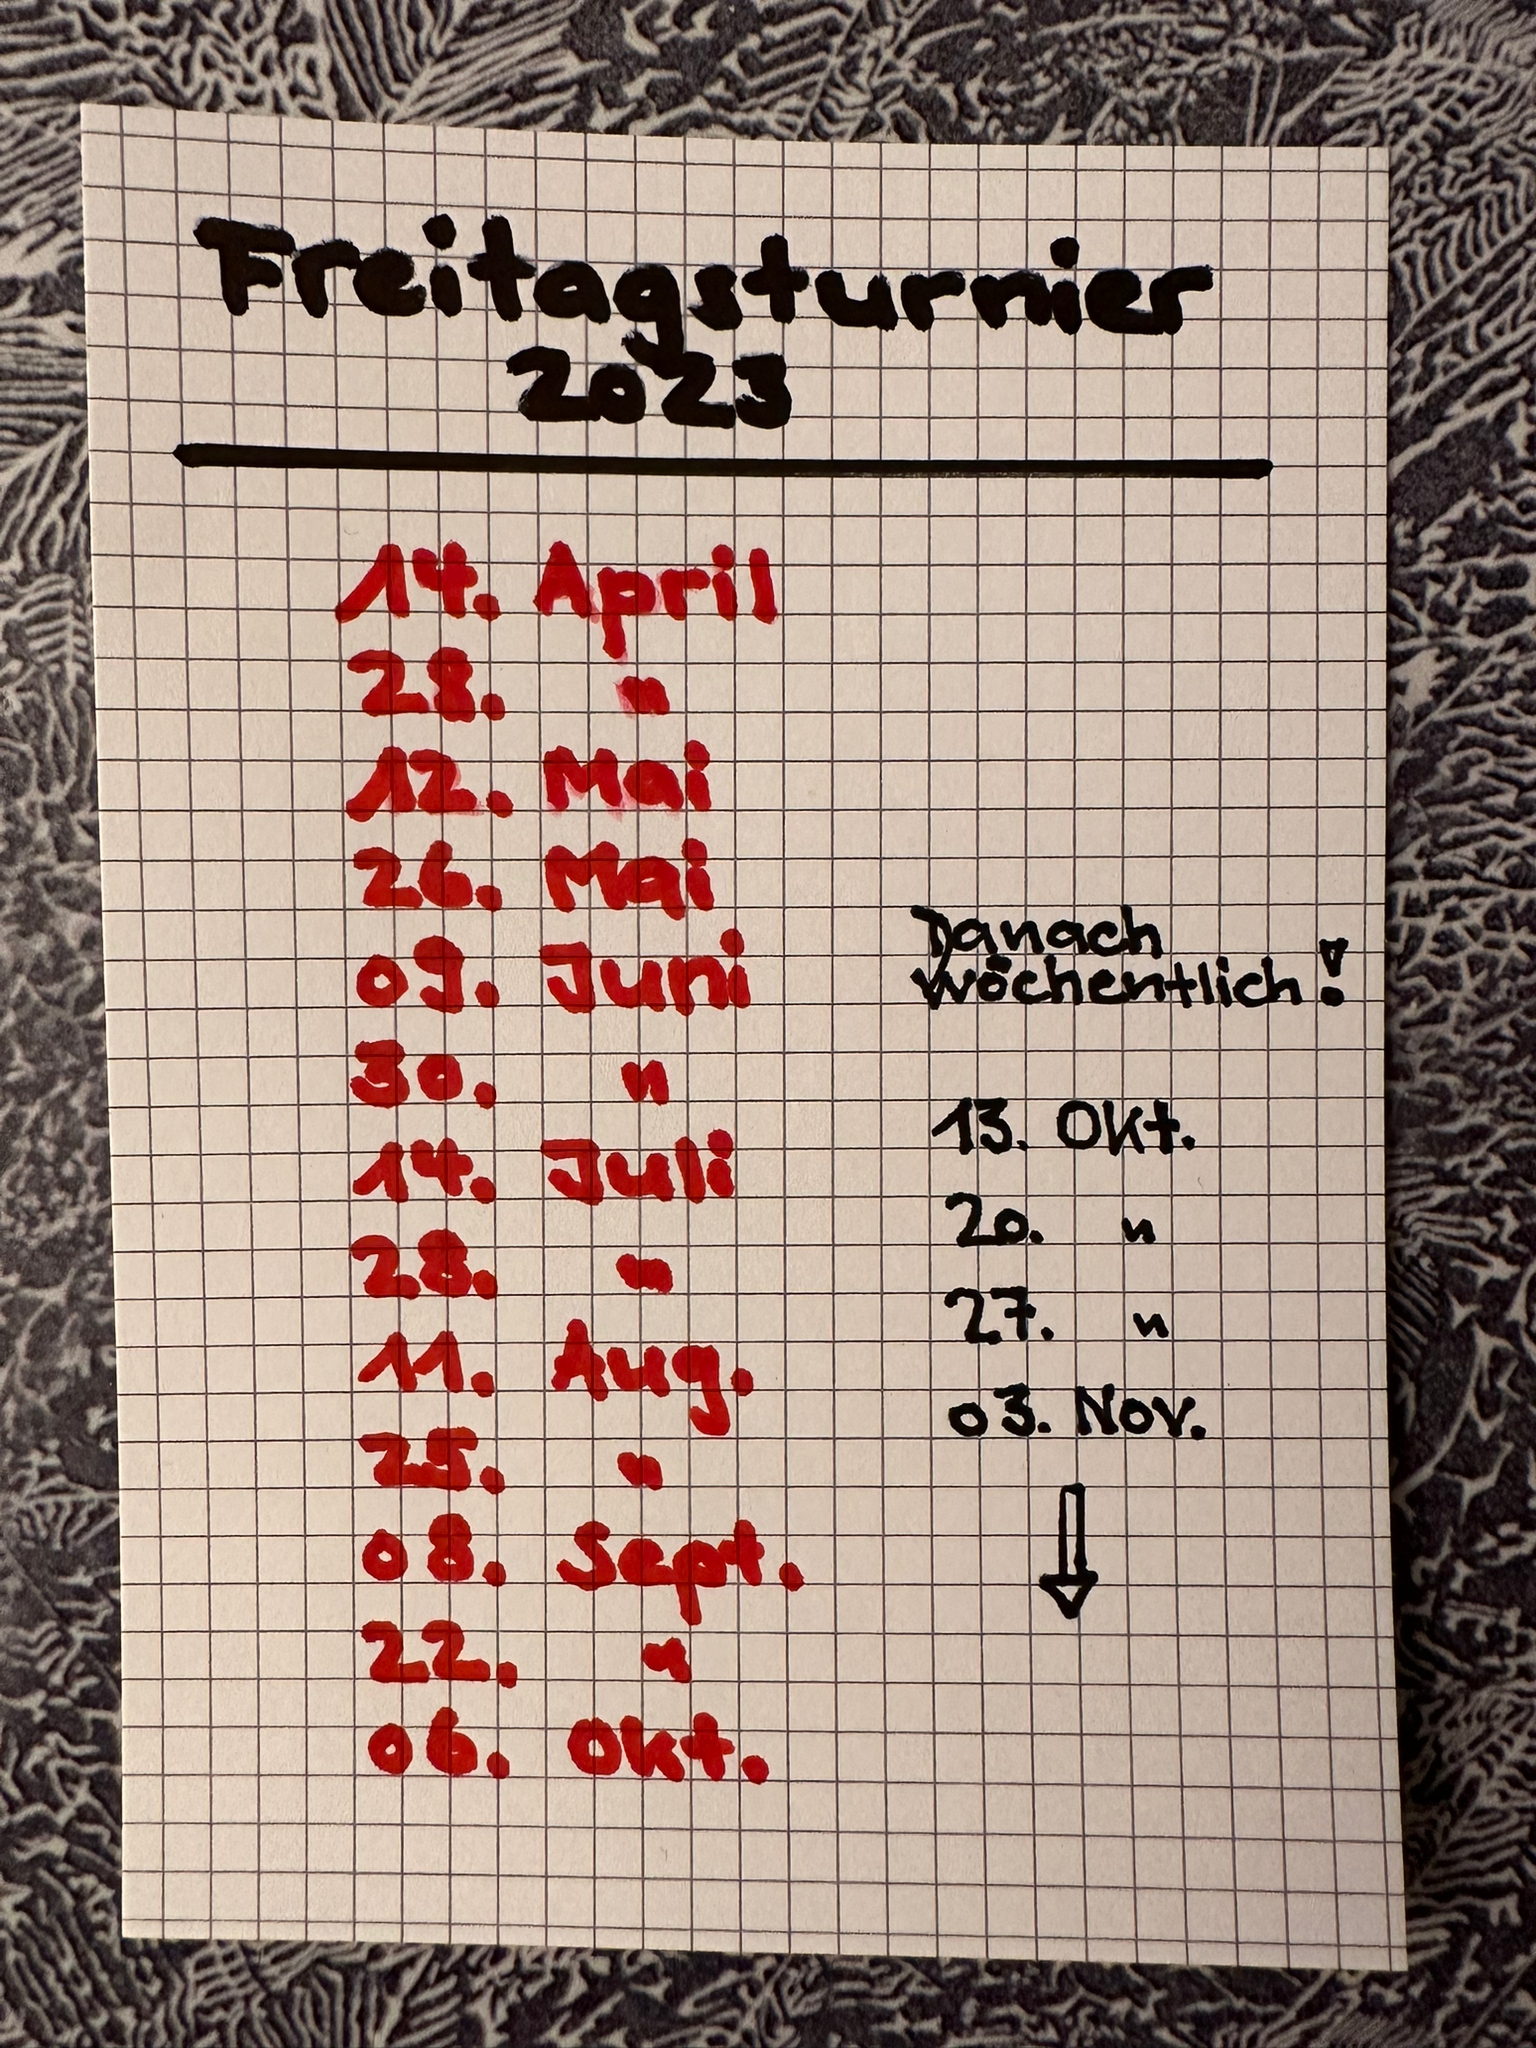 Freitagsturnier
2023
14. April
28. "
12. Mai
26. Mai
09. Juni
30. "
14. Juli
28. "
11. Aug.
25. "
08. Sept.
22. "
06. Okt.
Danach
wöchentlich!
13. Okt.
20. "
27. "
03. Nov.